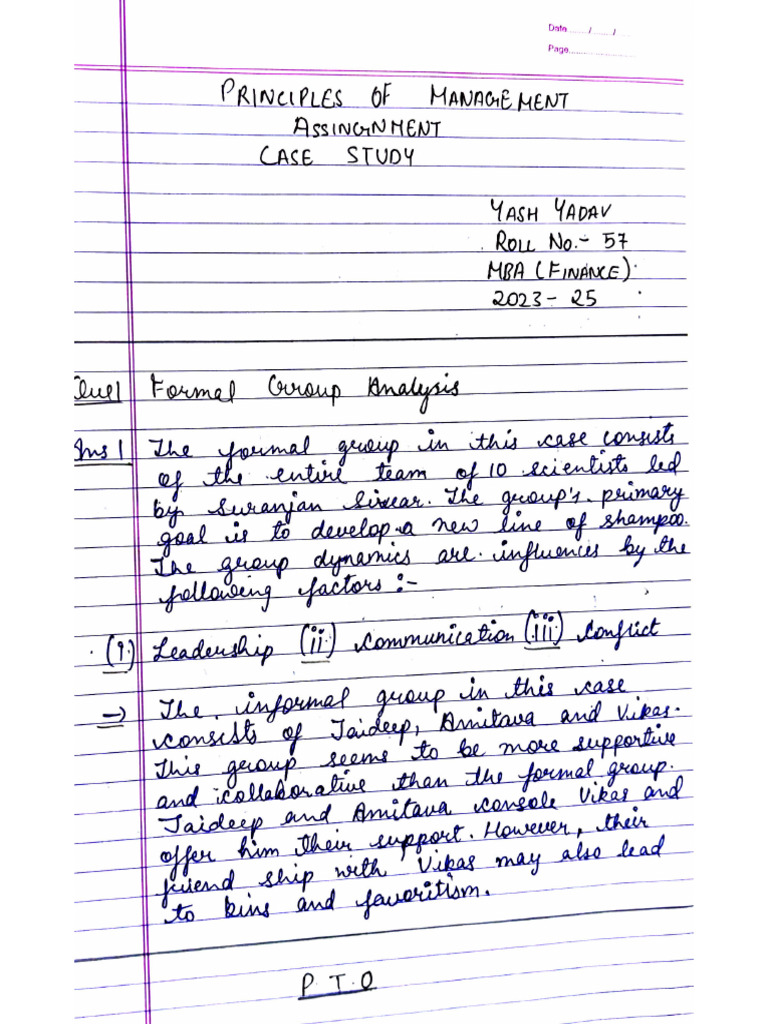 Date......./......./......
Page........................
PRINCIPLES OF MANAGEMENT
ASSINGNMENT
CASE STUDY
YASH YADAV
ROLL NO.- 57
MBA (FINANCE).
2023- 25
Que1 Formal Group Analysis
Ans 1 The formal group in this case consists
of the entire team of 10 scientists led
by Suranjan Sircar. The group's primary
goal is to develop a new line of shampoo.
The group dynamics are influences by the
following factors :-
(i) Leadership (ii) communication (iii) conflict
→ The informal group in this case
consists of Jaideep, Amitava and Vikas.
This group seems to be more supportive
and collaborative than the formal group.
Jaideep and Amitava console Vikas and
offer him their support. However, their
friend ship with Vikas may also lead
to bins and favoritism.
P.T.O